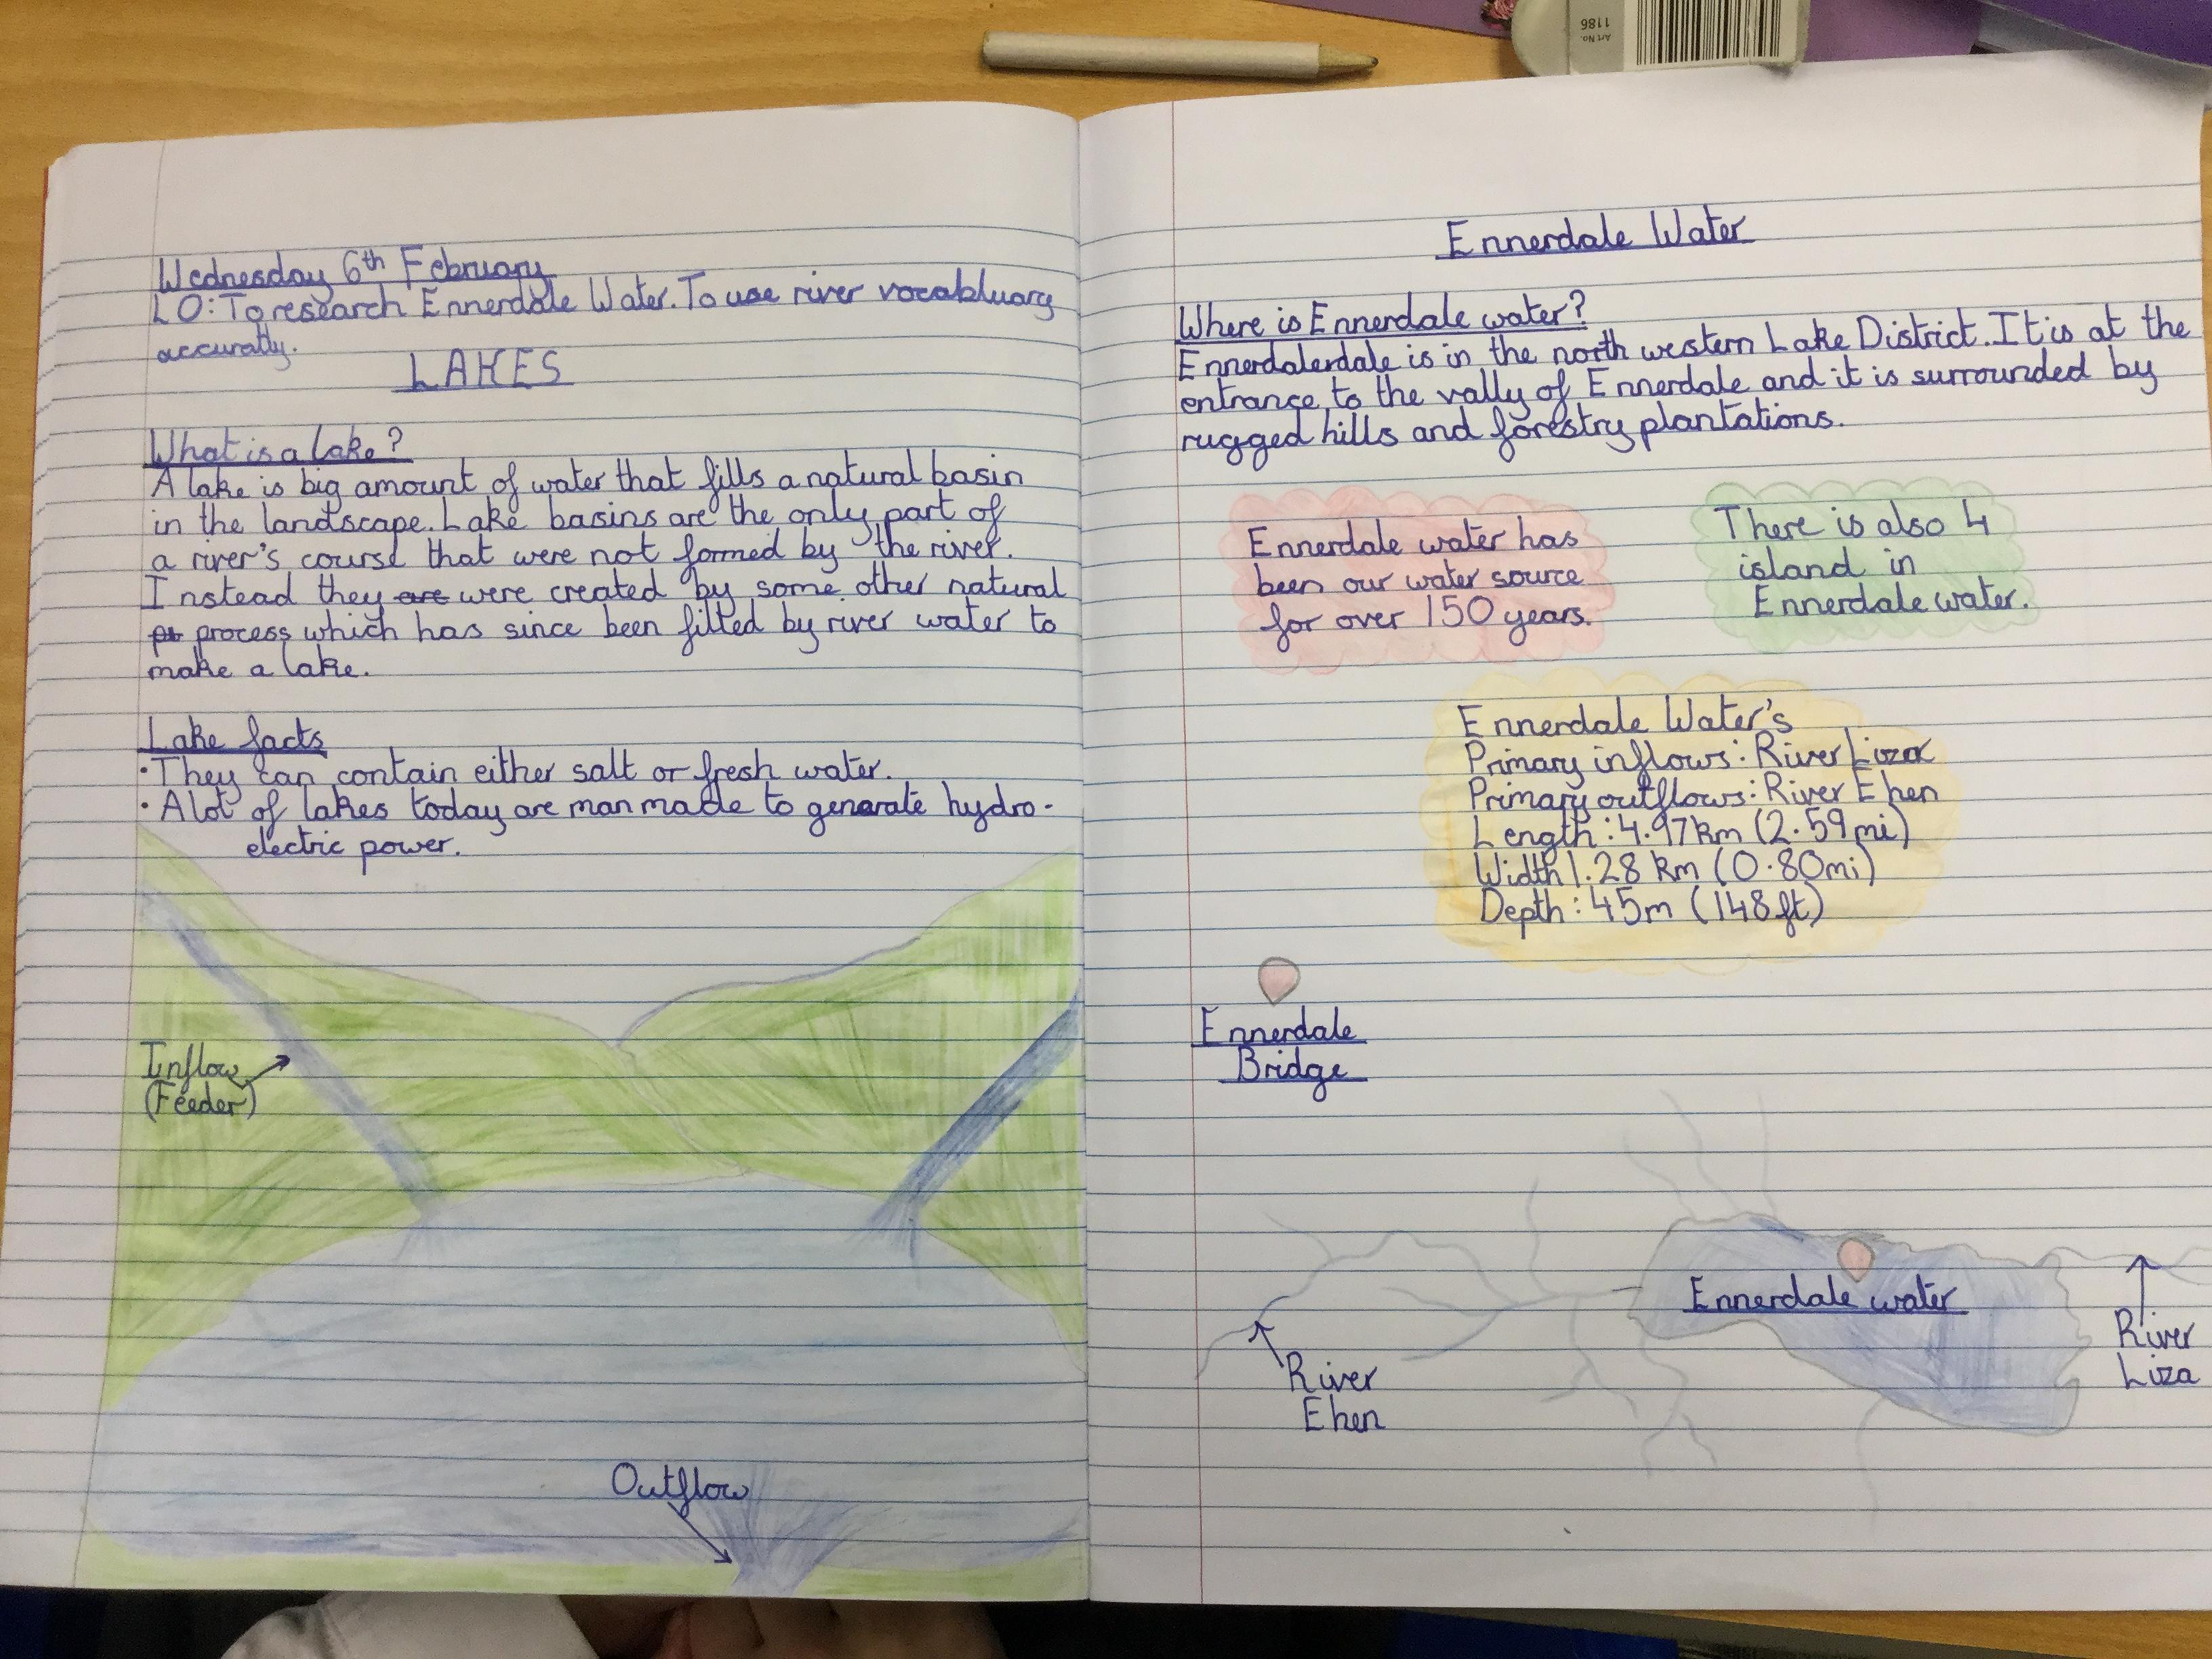 Art No.
1186
Wednesday 6th February
LO: To research Ennerdale Water. To use river vocabluary
accuratly.
LAKES
What is a lake?
A lake is big amount of water that fills a natural basin
in the landscape. Lake basins are the only part of
a river's course that were not formed by the river.
Instead they are were created by some other natural
pr process which has since been filled by river water to
make a lake.
Lake facts
• They can contain either salt or fresh water.
• A lot of lakes today are man made to generate hydro-
electric power.
Inflow
(Feeder)
Outflow
Ennerdale Water
Where is Ennerdale water?
Ennerdalerdale is in the north western Lake District. It is at the
entrance to the vally of Ennerdale and it is surrounded by
rugged hills and forestry plantations.
Ennerdale water has
been our water source
for over 150 years.
There is also 4
island in
Ennerdale water.
Ennerdale Water's
Primary inflows: River Liza
Primary outflows: River Ehen
Length: 4.97km (2.59mi)
Width 1.28 km (0.80mi)
Depth: 45m (148ft)
Ennerdale
Bridge
Ennerdale water
River
Ehen
River
Liza